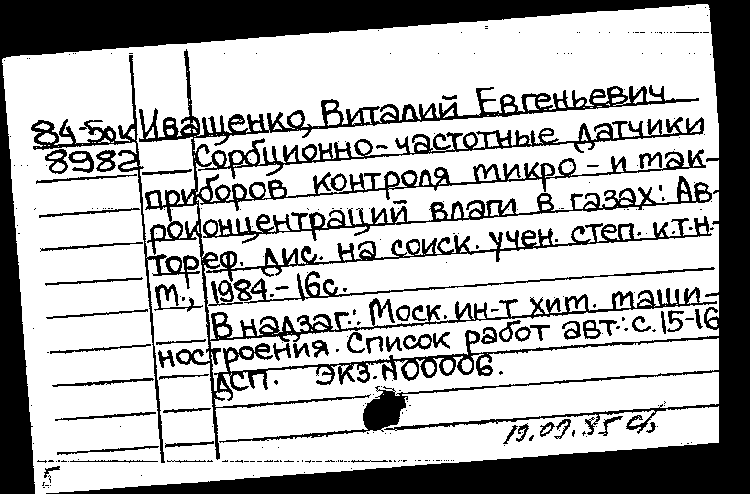 84-5ок Иващенко, Виталий Евгеньевич.
8982 Сорбционно-частотные датчики
приборов контроля микро- и мак-
роконцентраций влаги в газах: Ав-
тореф. дис. на соиск. учен. степ. к.т.н.-
М., 1984.-16с.
В надзаг.: Моск. ин-т хим. маши-
ностроения. Список работ авт.: с.15-16
ДСП. ЭКЗ.N00006.
19.09.85
5